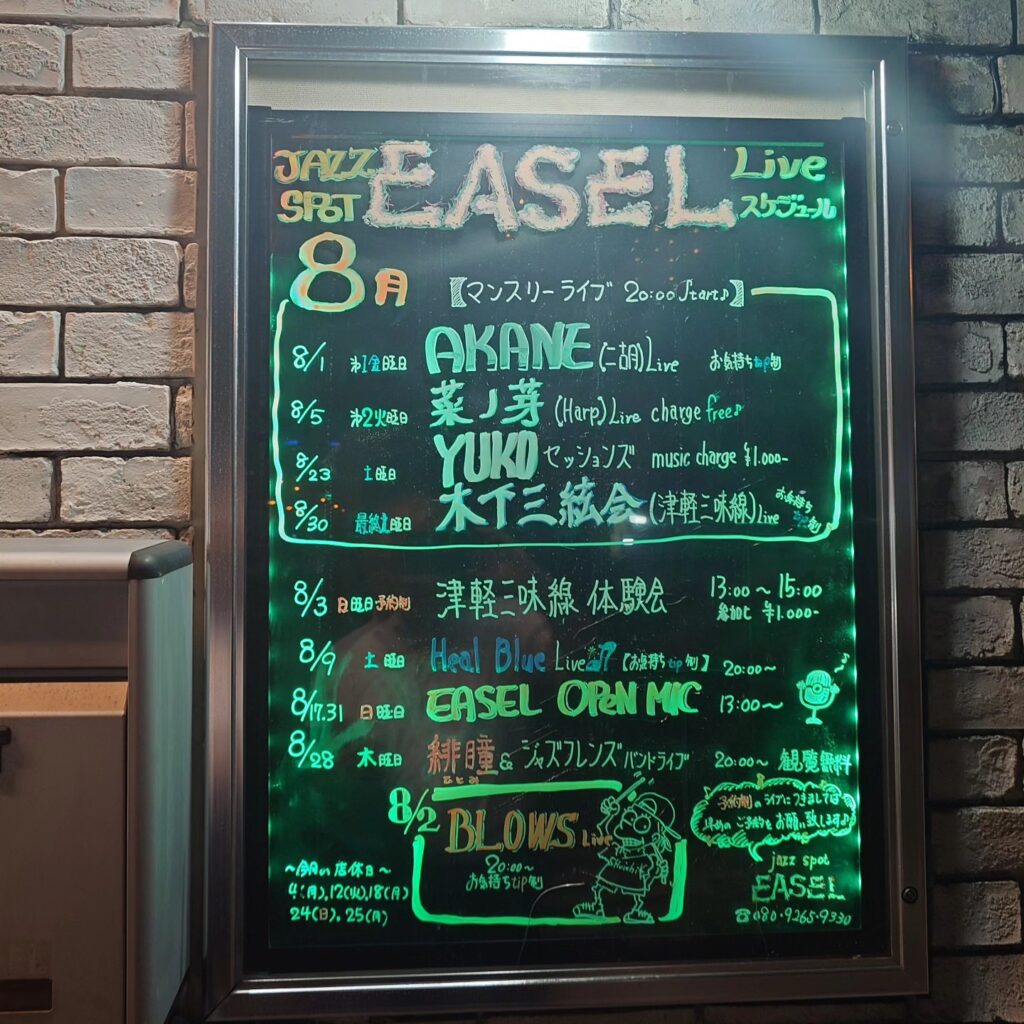 JAZZ SPOT EASEL Live スケジュール
8月 【マンスリーライブ 20:00 Start♪】
8/1 第1金曜日 AKANE (二胡) Live お気持ちtip制
8/5 第2火曜日 菜ノ芽 (Harp) Live charge free♪
8/23 土曜日 YUKO セッションズ music charge ¥1.000-
8/30 最終土曜日 木下三絃会 (津軽三味線) Live お気持ちtip制
8/3 日曜日 予約制 津軽三味線 体験会 13:00～15:00
参加費 ¥1.000-
8/9 土曜日 Heal Blue Live♫ 【お気持ちtip制】 20:00～
8/17.31 日曜日 EASEL OPEN MIC 13:00～
8/28 木曜日 緋瞳 & ジャズフレンズ バンドライブ 20:00～ 観覧無料
ひとみ
8/2 BLOWS Live
20:00～
お気持ちtip制
予約制のライブにつきましては
早めのご予約をお願い致します♪
～今月の店休日～
4(月),12(火),18(月)
24(日),25(月)
jazz spot
EASEL
☎080-9265-9330